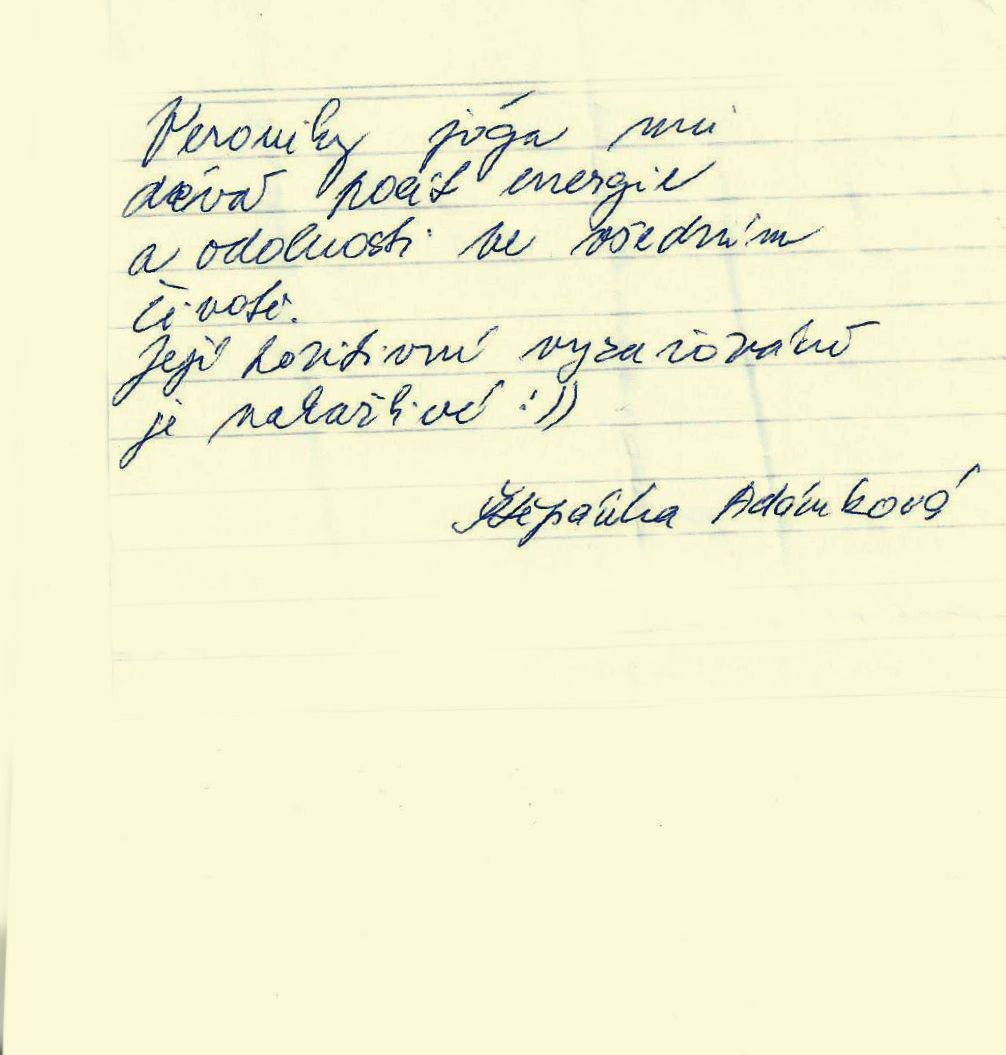 Veroniky jóga mi
dává pocit energie
a odolnosti ve všedním
životě.
Její pozitivní vyzařování
je nakažlivé :))
Štěpánka Adámková